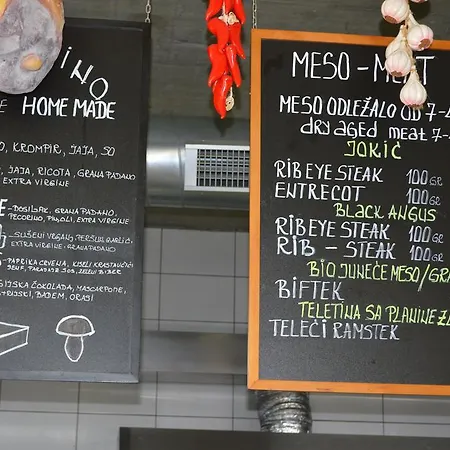 HOME MADE
KROMPIR, JAJA, SO
JAJA, RICOTA, GRANA PADANO
EXTRA VIRGINE
DOSILJAK, GRANA PADANO,
PECORINO, PINJOLI, EXTRA VIRGINE
SUŠENI VRGANJ, PERŠUN, GARLIĆ,
EXTRA VIRGINE, GRANA PADANO
PAPRIKA CRVENA, KISELI KRASTAVČIĆI
SENF, PARADAJZ SOS, ZELENI BIBER
ČOKOLADA, MASCARPONE,
BADEM, ORASI
MESO - MEAT
MESO ODLEŽALO OD 7-
dry aged meat 7-
JOKIĆ
RIB EYE STEAK 100 GR
ENTRECOT 100 GR
BLACK ANGUS
RIB EYE STEAK 100 GR
RIB - STEAK 100 GR
BIO JUNEĆE MESO/GRA
BIFTEK
TELETINA SA PLANINE
TELEĆI RAMSTEK